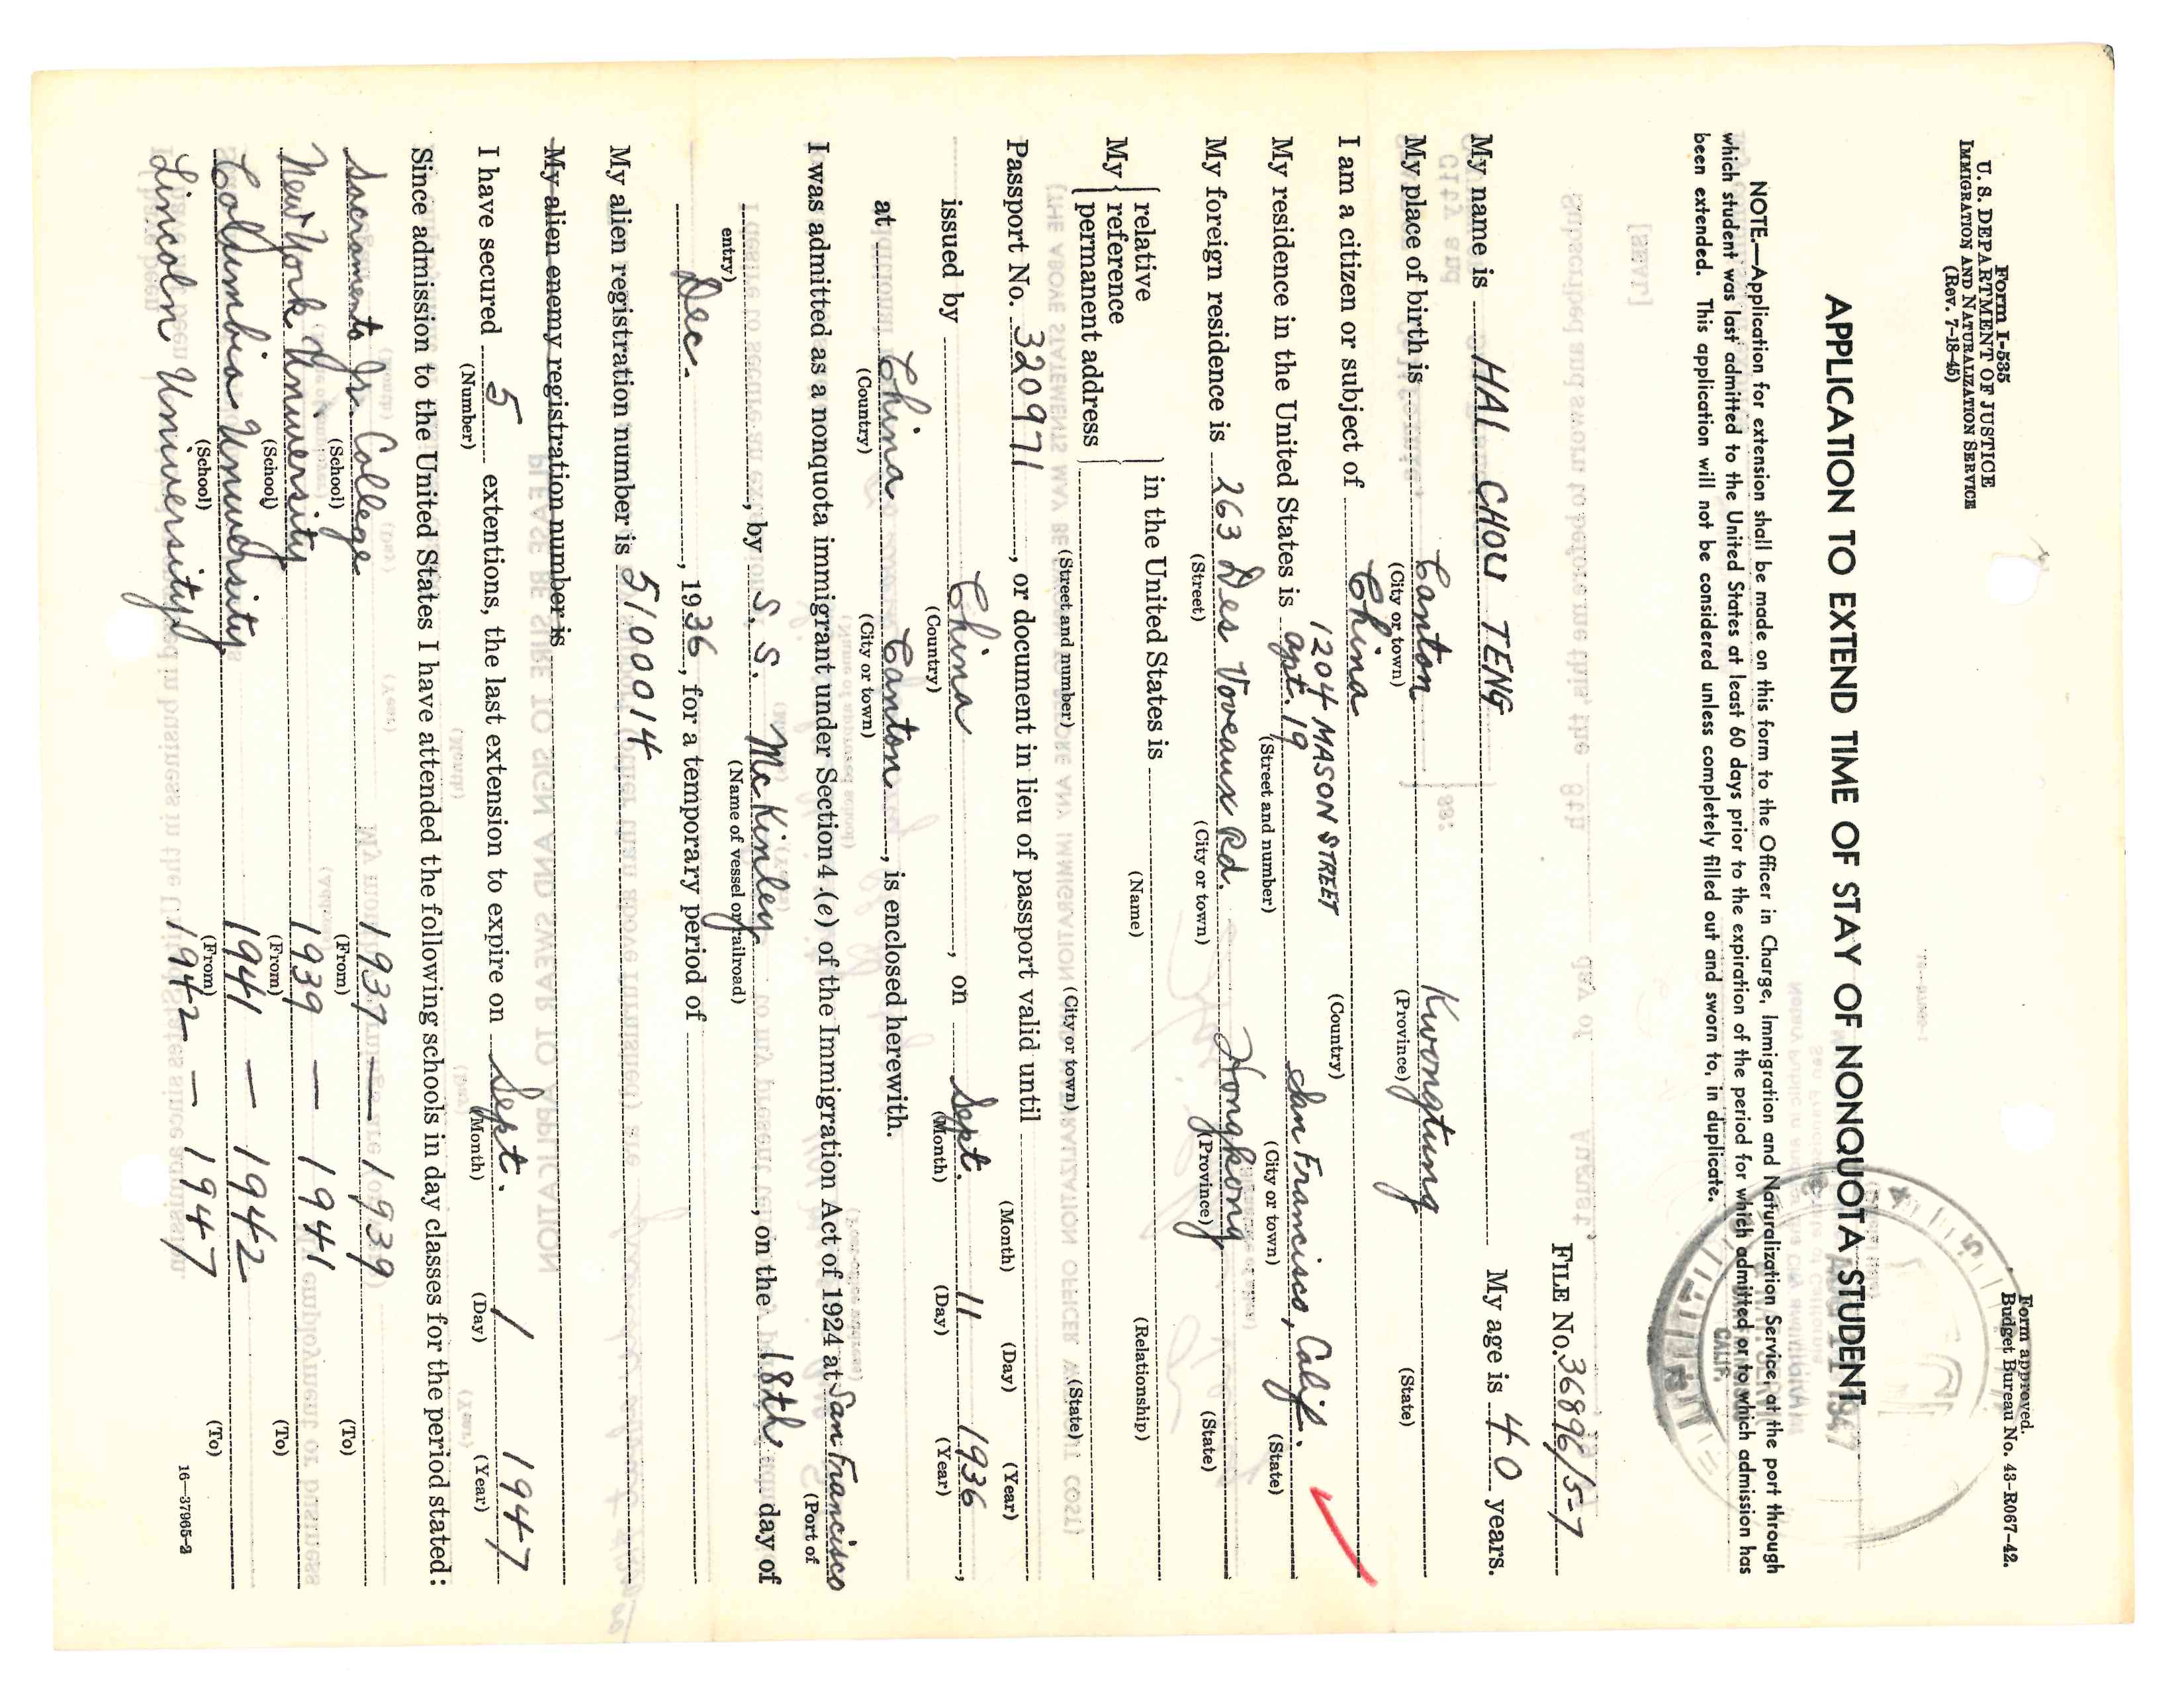 Form I-535
U. S. DEPARTMENT OF JUSTICE
IMMIGRATION AND NATURALIZATION SERVICE
(Rev. 7-18-45)
Form approved.
Budget Bureau No. 43-R067-42.
APPLICATION TO EXTEND TIME OF STAY OF NONQUOTA STUDENT
AUG 11 1947
NOTE.—Application for extension shall be made on this form to the Officer in Charge, Immigration and Naturalization Service, at the port through
which student was last admitted to the United States at least 60 days prior to the expiration of the period for which admitted or to which admission has
been extended. This application will not be considered unless completely filled out and sworn to, in duplicate.
& NAT. SERV.
SAN FRANCISCO
CALIF.
FILE No. 36896/5-7
My name is HAI CHOU TENG My age is 40 years.
My place of birth is Canton Kwongtung
(City or town) (Province) (State)
I am a citizen or subject of China
(Country)
1204 MASON STREET
My residence in the United States is apt. 19 San Francisco, Calif.
(Street and number) (City or town) (State)
My foreign residence is 263 Des Voveaux Rd. Hongkong
(Street) (City or town) (Province) (State)
My { relative reference permanent address } in the United States is
(Name) (Relationship)
(Street and number) (City or town) (State)
Passport No. 320971, or document in lieu of passport valid until
(Month) (Day) (Year)
issued by China, on Sept. 11 1936,
(Country) (Month) (Day) (Year)
at China Canton, is enclosed herewith.
(Country) (City or town)
I was admitted as a nonquota immigrant under Section 4 (e) of the Immigration Act of 1924 at San Francisco
(Port of
, by S. S. McKinley, on the 18th day of
entry) (Name of vessel or railroad)
Dec., 1936, for a temporary period of
My alien registration number is 5100014
My alien enemy registration number is
I have secured 5 extentions, the last extension to expire on Sept. 1 1947
(Number) (Month) (Day) (Year)
Since admission to the United States I have attended the following schools in day classes for the period stated:
Sacramento Jr. College 1937 — 1939
(School) (From) (To)
New York University 1939 — 1941
(School) (From) (To)
Columbia University 1941 — 1942
(School) (From) (To)
Lincoln University 1942 — 1947
16—37965-2